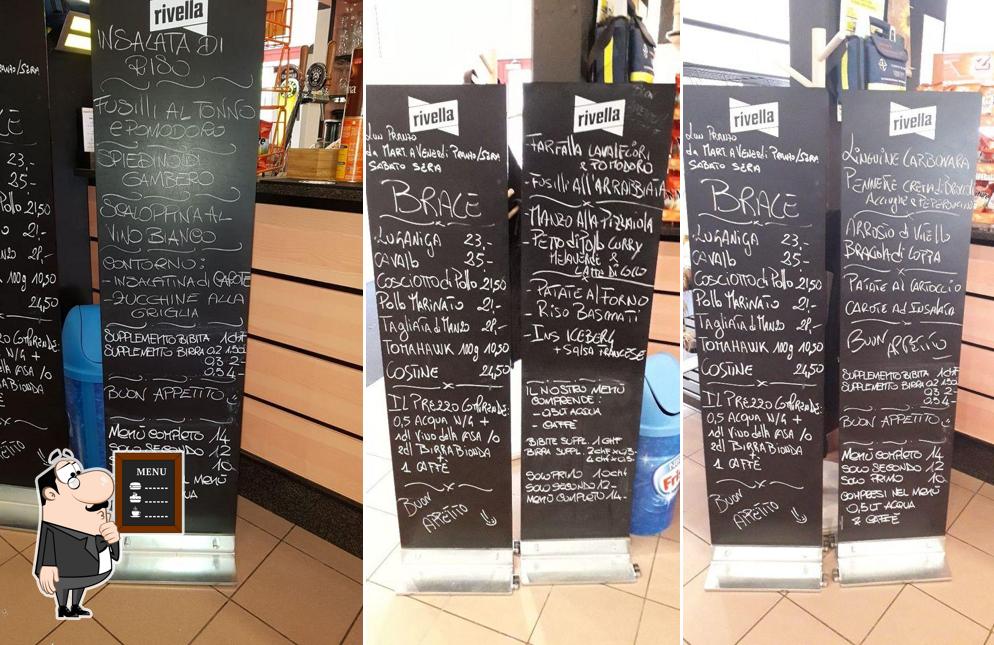 rivella
INSALATA DI
RISO
FUSILLI AL TONNO
E POMODORO
SPIEDINO DI
GAMBERO
SCALOPPINA AL
VINO BIANCO
CONTORNO:
- INSALATINA DI CAROTE
- ZUCCHINE ALLA
GRIGLIA
SUPPLEMENTO BIBITA 1CHF
SUPPLEMENTO BIRRA 0.2 1.50
0.3 2.-
0.5 4.-
BUON APPETITO
MENÙ COMPLETO 14
SOLO SECONDO 12
10.-
MENÙ
23,-
25,-
POLLO 21,50
21,-
28,-
100g 10,50
24,50
MENU
rivella
da MART. A VENERDÌ PRANZO/SERA
SABATO SERA
BRACE
LUGANIGA 23,-
CAVALLO 25,-
COSCIOTTO di POLLO 21,50
POLLO MARINATO 21,-
TAGLIATA DI MANZO 28,-
TOMAHAWK 100g 10,50
COSTINE 24,50
IL PREZZO COMPRENDE:
0,5 ACQUA N/G +
1dl VINO della CASA /o
2dl BIRRA BIONDA
+
1 CAFFÈ
BUON
APPETITO
rivella
- FARFALLA CAVALFIORI
& POMODORO
- FUSILLI ALL'ARRABBIATA
- MANZO ALLA PIZZAIOLA
- PETTO di POLLO CURRY
MELANZANE &
LATTE DI COCCO
- PATATE AL FORNO
- RISO BASMATI
INS ICEBERG
+ SALSA FRANCESE
IL NOSTRO MENÙ
COMPRENDE:
- 0,5LT ACQUA
- CAFFÈ
BIBITE SUPPL. 1 CHF
SOLO PRIMO 10 CHF
SOLO SECONDO 12.-
MENÙ COMPLETO 14.-
rivella
da MART. A VENERDÌ PRANZO/SERA
SABATO SERA
BRACE
LUGANIGA 23,-
CAVALLO 25,-
COSCIOTTO di POLLO 21,50
POLLO MARINATO 21,-
TAGLIATA DI MANZO 28,-
TOMAHAWK 100g 10,50
COSTINE 24,50
IL PREZZO COMPRENDE:
0,5 ACQUA N/G +
1dl VINO della CASA /o
2dl BIRRA BIONDA
+
1 CAFFÈ
BUON
APPETITO
rivella
LINGUINE CARBONARA
PENNETTE CREMA di BROCCOLI
ACCIUGHE & PEPERONCINO
ARROSTO di VITELLO
BRACIOLA di COPPA
PATATE AL CARTOCCIO
CAROTE AD INSALATA
BUON APPETITO
SUPPLEMENTO BIBITA 1CHF
SUPPLEMENTO BIRRA 0.2 1.50
0.3 2.-
0.5 4.-
BUON APPETITO
MENÙ COMPLETO 14
SOLO SECONDO 12
SOLO PRIMO 10.-
COMPRESI NEL MENÙ
0,5LT ACQUA
& CAFFÈ